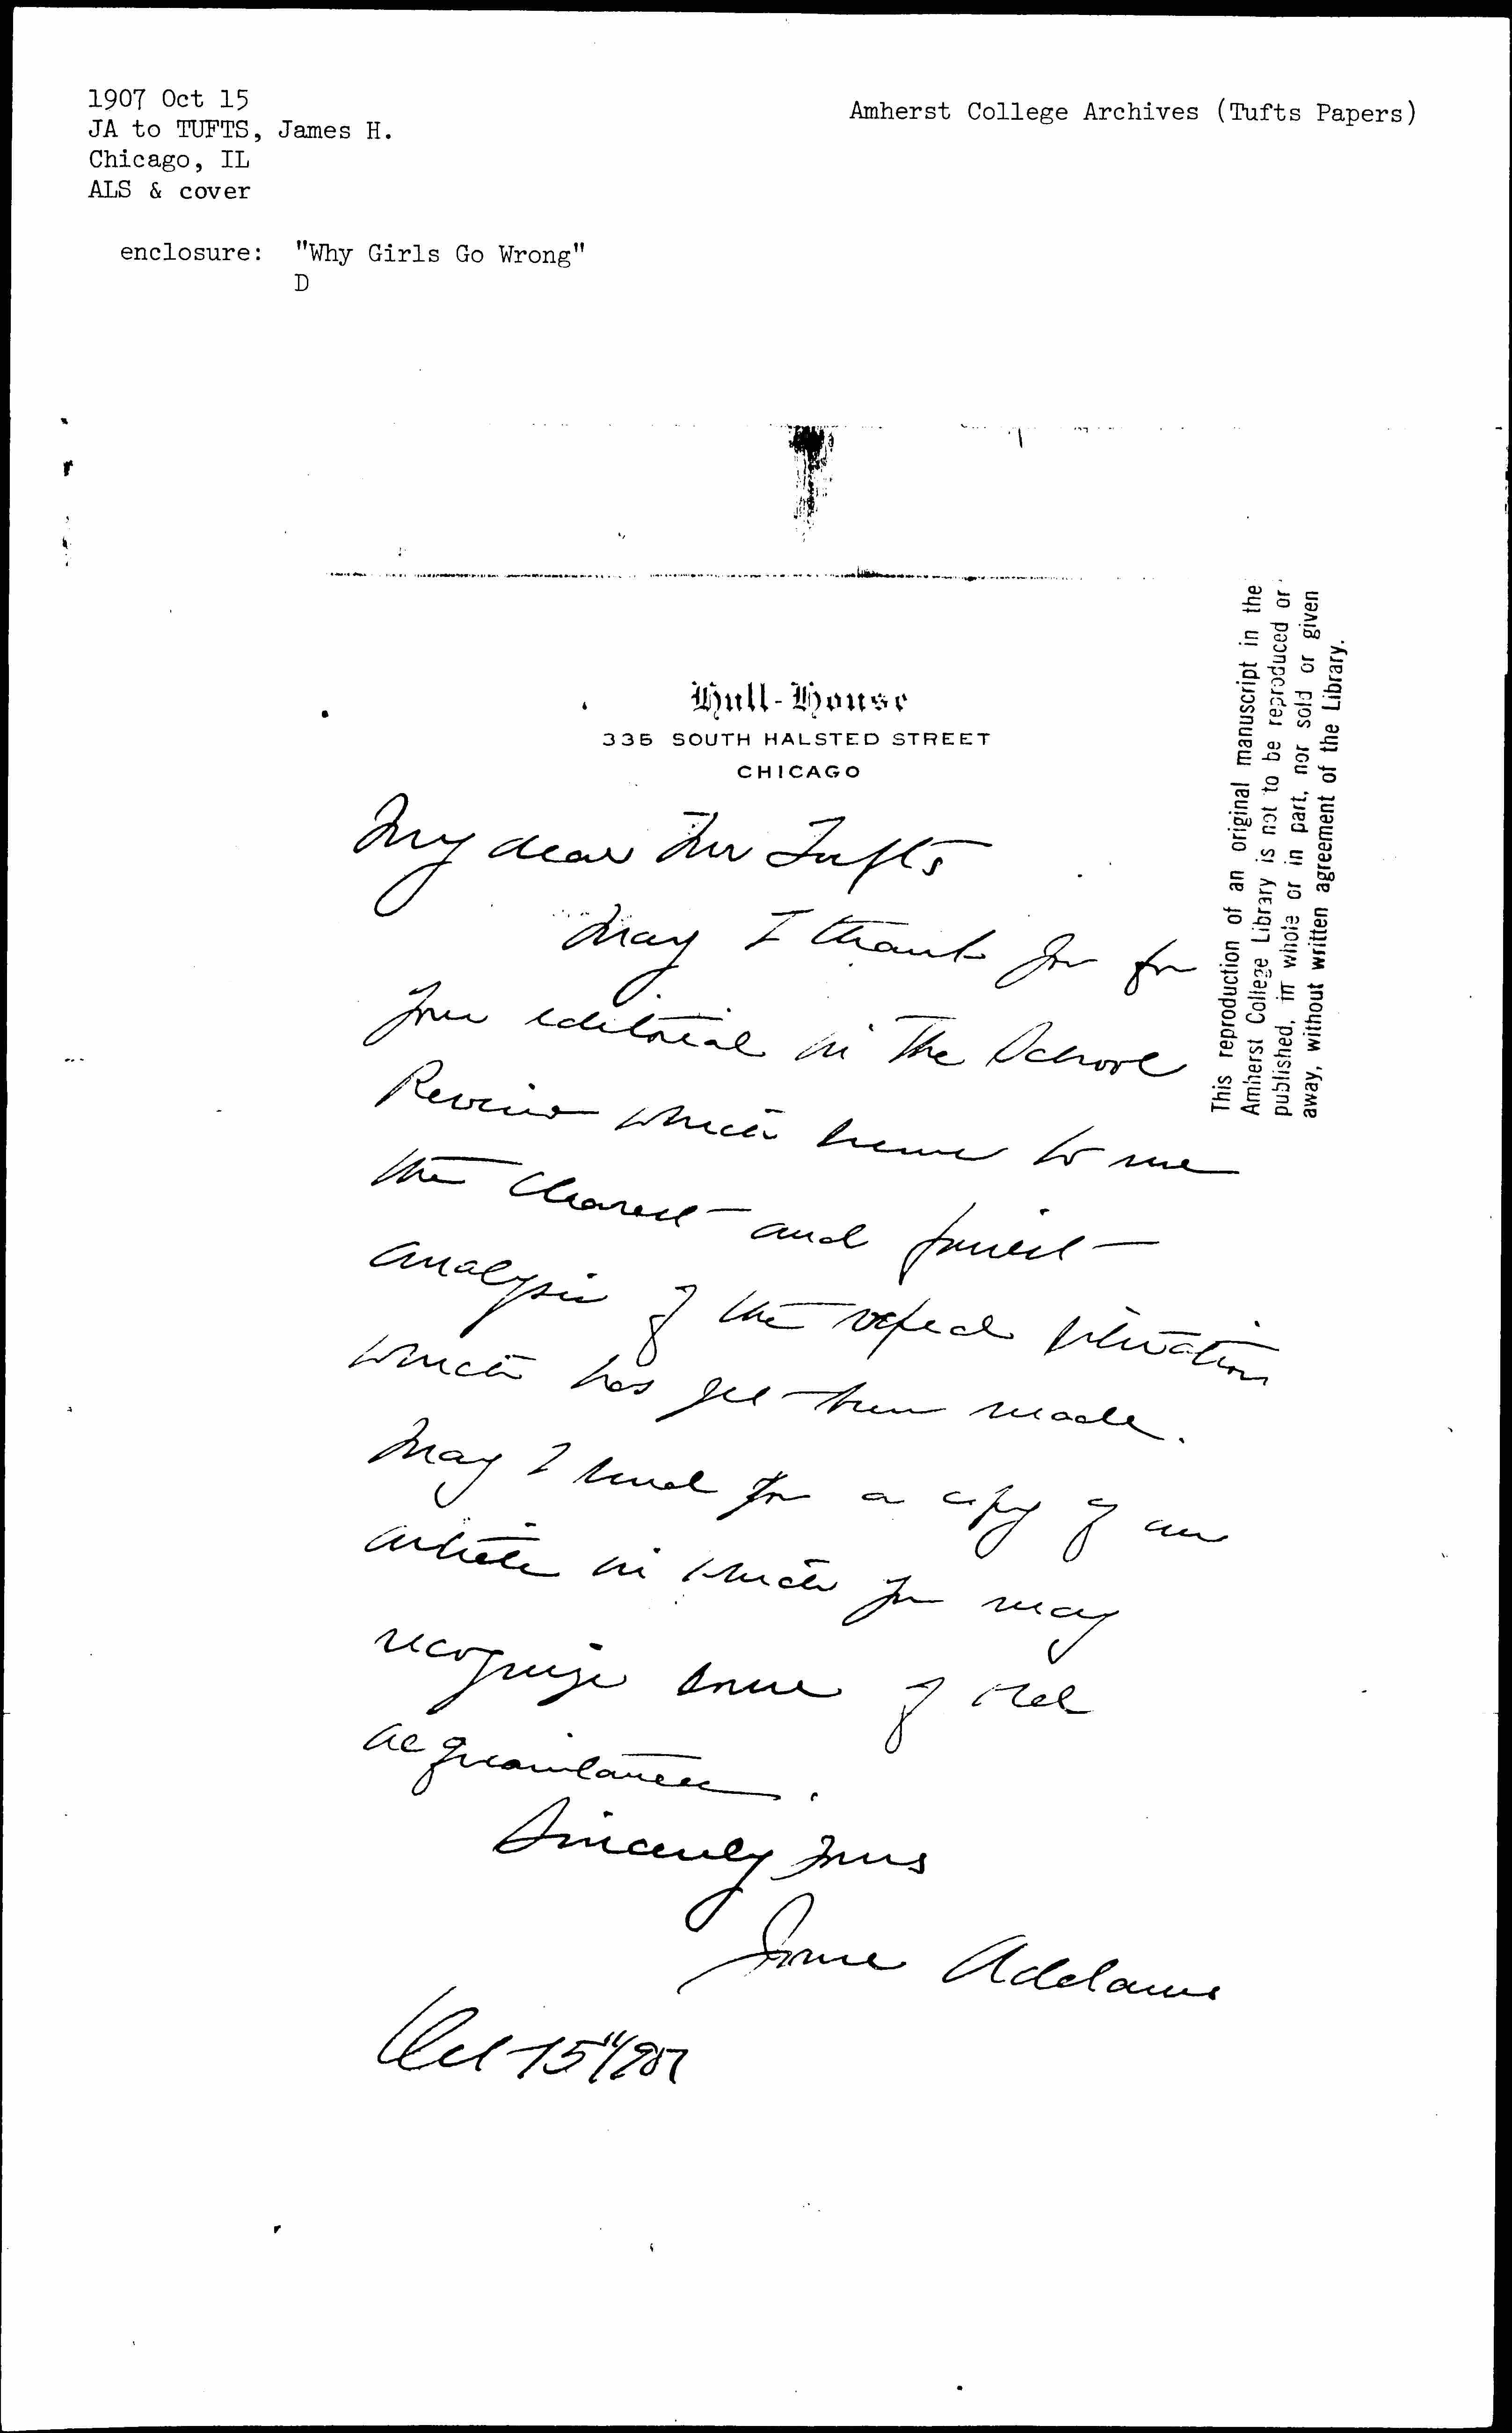 1907 Oct 15
JA to TUFTS, James H.
Chicago, IL
ALS & cover
enclosure: "Why Girls Go Wrong"
D
Amherst College Archives (Tufts Papers)
Hull-House
335 SOUTH HALSTED STREET
CHICAGO
My dear Mr Tufts
May I thank you for
your editorial in The School
Review which seems to me
the clearest and fairest
analysis of the vexed situation
which has yet been made.
May I send you a copy of an
article in which you may
recognize some of old
acquaintances.
Sincerely yours
Jane Addams
Oct 15" 1907
This reproduction of an original manuscript in the
Amherst College Library is not to be reproduced or
published, in whole or in part, nor sold or given
away, without written agreement of the Library.